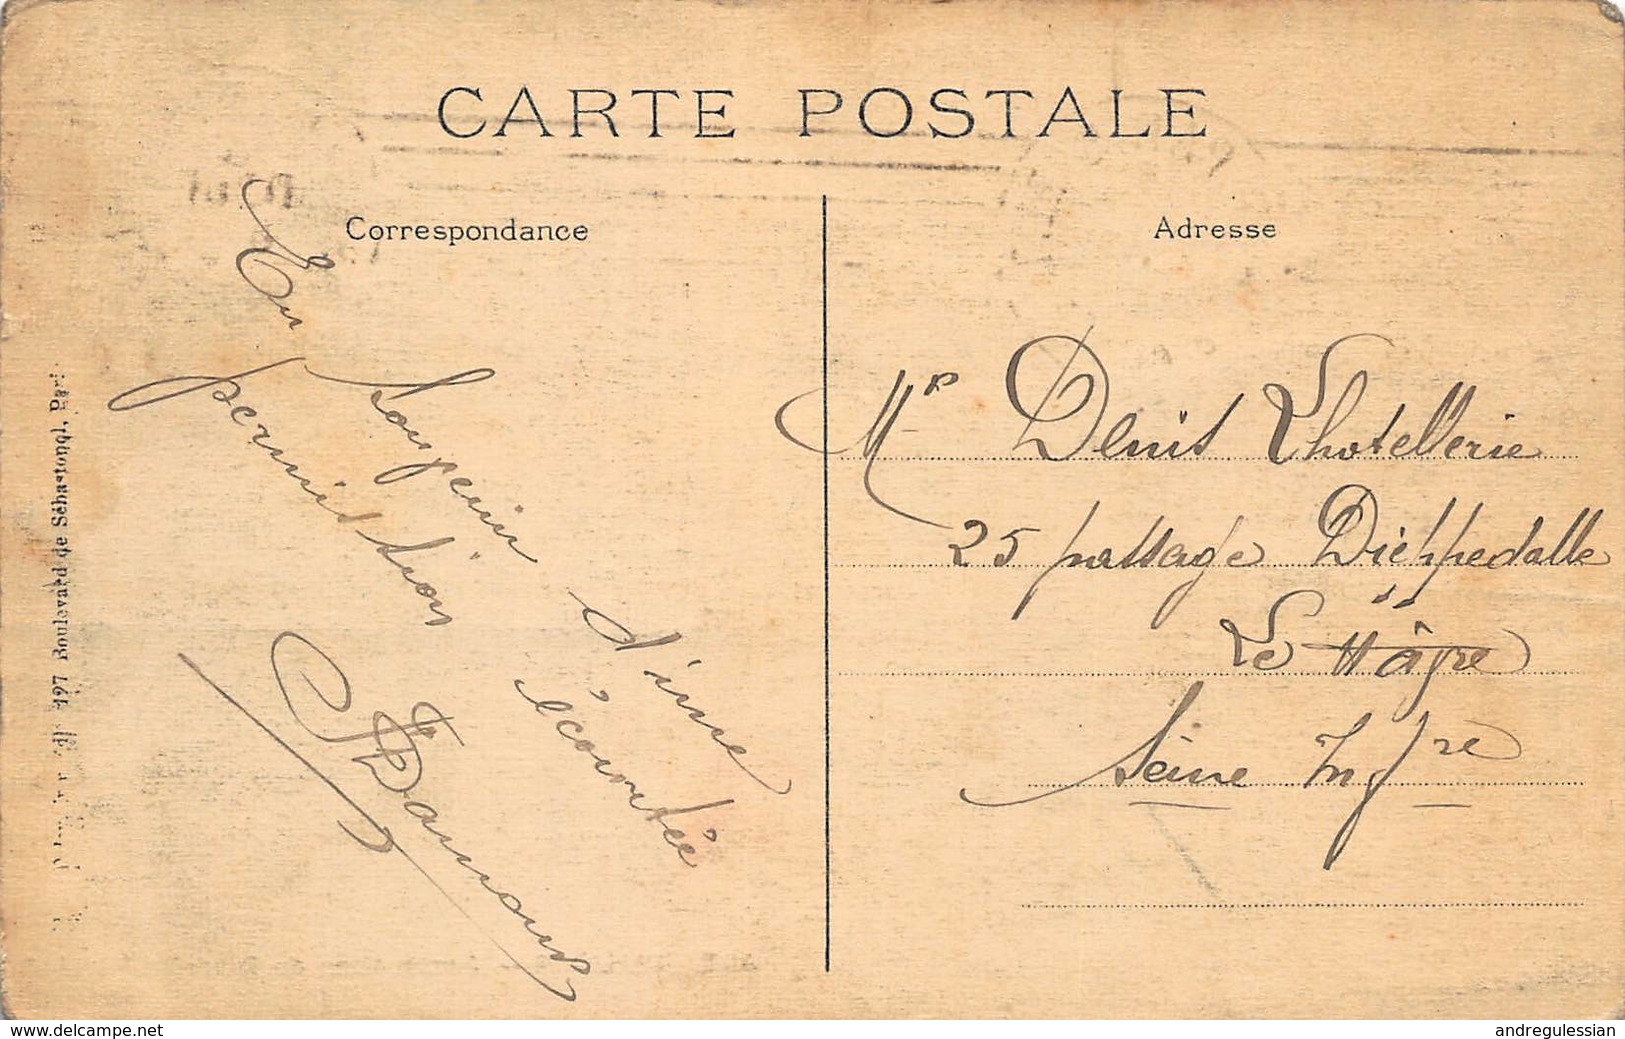 CARTE POSTALE
Correspondance
Adresse
En souvenir d'une
permission écourtée
Damour
Mr Denis Lhotellerie
25 passage Dieppedalle
Le Hâvre
Seine Infre
197 Boulevard de Sébastopol, Paris
www.delcampe.net
andregulessian